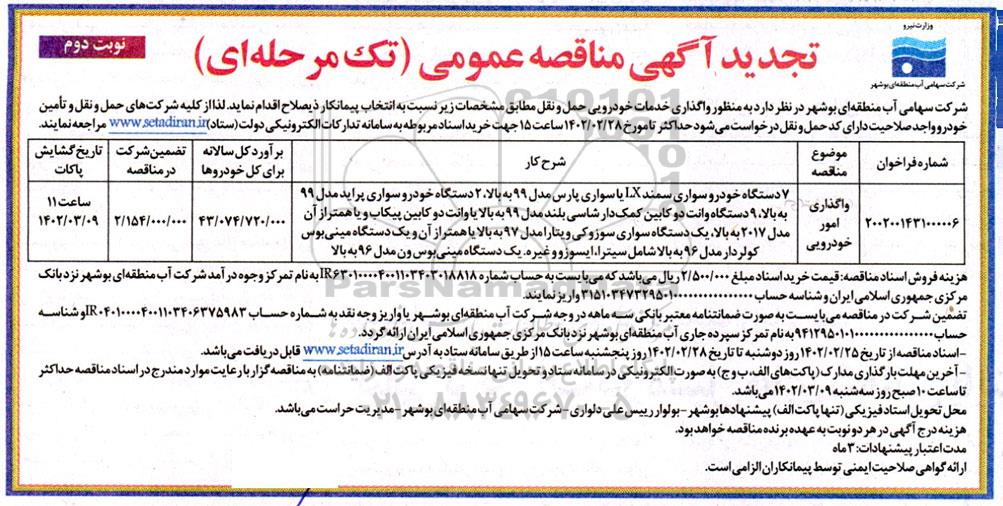 وزارت نیرو
شرکت سهامی آب منطقه‌ای بوشهر
نوبت دوم
تجدید آگهی مناقصه عمومی (تک مرحله‌ای)
شرکت سهامی آب منطقه‌ای بوشهر در نظر دارد به منظور واگذاری خدمات خودرویی حمل و نقل مطابق مشخصات زیر نسبت به انتخاب پیمانکار ذیصلاح اقدام نماید. لذا از کلیه شرکت‌های حمل و نقل و تأمین
خودرو واجد صلاحیت دارای کد حمل و نقل درخواست می‌شود حداکثر تا مورخ ۱۴۰۲/۰۲/۲۸ ساعت ۱۵ جهت خرید اسناد مربوطه به سامانه تدارکات الکترونیکی دولت (ستاد) www.setadiran.ir مراجعه نمایند.
شماره فراخوان
موضوع مناقصه
شرح کار
برآورد کل سالانه برای کل خودروها
تضمین شرکت در مناقصه
تاریخ گشایش پاکات
۲۰۰۲۰۰۱۴۳۱۰۰۰۰۰۶
واگذاری امور خودرویی
۷ دستگاه خودرو سواری سمند LX یا سواری پارس مدل ۹۹ به بالا، ۲ دستگاه خودرو سواری پراید مدل ۹۹
به بالا، ۹ دستگاه وانت دو کابین کمک‌دار شاسی بلند مدل ۹۹ به بالا یا وانت دو کابین پیکاپ و یا همتراز آن
مدل ۲۰۱۷ به بالا، یک دستگاه سواری سوزوکی ویتارا مدل ۹۷ به بالا یا همتراز آن و یک دستگاه مینی‌بوس
کولردار مدل ۹۶ به بالا شامل سیترا، ایسوزو و غیره. یک دستگاه مینی‌بوس ون مدل ۹۶ به بالا
۴۳/۰۷۴/۷۲۰/۰۰۰
۲/۱۵۴/۰۰۰/۰۰۰
ساعت ۱۱
۱۴۰۲/۰۳/۰۹
هزینه فروش اسناد مناقصه: قیمت خرید اسناد مبلغ ۲/۵۰۰/۰۰۰ ریال می‌باشد که می‌بایست به حساب شماره IR۶۳۰۱۰۰۰۰۴۰۰۱۱۰۳۴۰۳۰۱۸۸۱۸ به نام تمرکز وجوه درآمد شرکت آب منطقه‌ای بوشهر نزد بانک
مرکزی جمهوری اسلامی ایران و شناسه حساب واریز نمایند.
تضمین شرکت در مناقصه می‌بایست به صورت ضمانتنامه معتبر بانکی سه ماهه در وجه شرکت آب منطقه‌ای بوشهر یا واریز وجه نقد به شماره حساب IR۰۴۰۱۰۰۰۰۴۰۰۱۱۰۳۴۰۶۳۷۵۹۸۳ و شناسه
حساب به نام تمرکز سپرده جاری آب منطقه‌ای بوشهر نزد بانک مرکزی جمهوری اسلامی ایران ارائه گردد.
-اسناد مناقصه از تاریخ ۱۴۰۲/۰۲/۲۵ روز دوشنبه تا تاریخ ۱۴۰۲/۰۲/۲۸ روز پنجشنبه ساعت ۱۵ از طریق سامانه ستاد به آدرس www.setadiran.ir قابل دریافت می‌باشد.
-آخرین مهلت بارگذاری مدارک (پاکت‌های الف، ب و ج) به صورت الکترونیکی در سامانه ستاد و تحویل تنها نسخه فیزیکی پاکت الف (ضمانتنامه) به مناقصه گزار با رعایت موارد مندرج در اسناد مناقصه حداکثر
تا ساعت ۱۰ صبح روز سه‌شنبه ۱۴۰۲/۰۳/۰۹ می‌باشد.
محل تحویل اسناد فیزیکی (تنها پاکت الف) پیشنهادها بوشهر - بولوار رییس علی دلواری - شرکت سهامی آب منطقه‌ای بوشهر - مدیریت حراست می‌باشد.
هزینه درج آگهی در هر دو نوبت به عهده برنده مناقصه خواهد بود.
مدت اعتبار پیشنهادات: ۳ ماه
ارائه گواهی صلاحیت ایمنی توسط پیمانکاران الزامی است.
ParsNamadData
۰۲۱-۸۸۳۴۹۶۷۰-۵